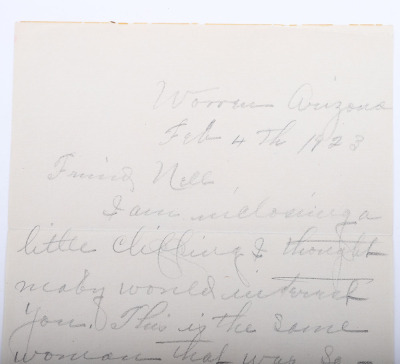 Warren Arizona
Feb 4th 1923
Friend Nell
I am inclosing a
little clipping I thought
maby would interest
you. This is the same
woman that was so-